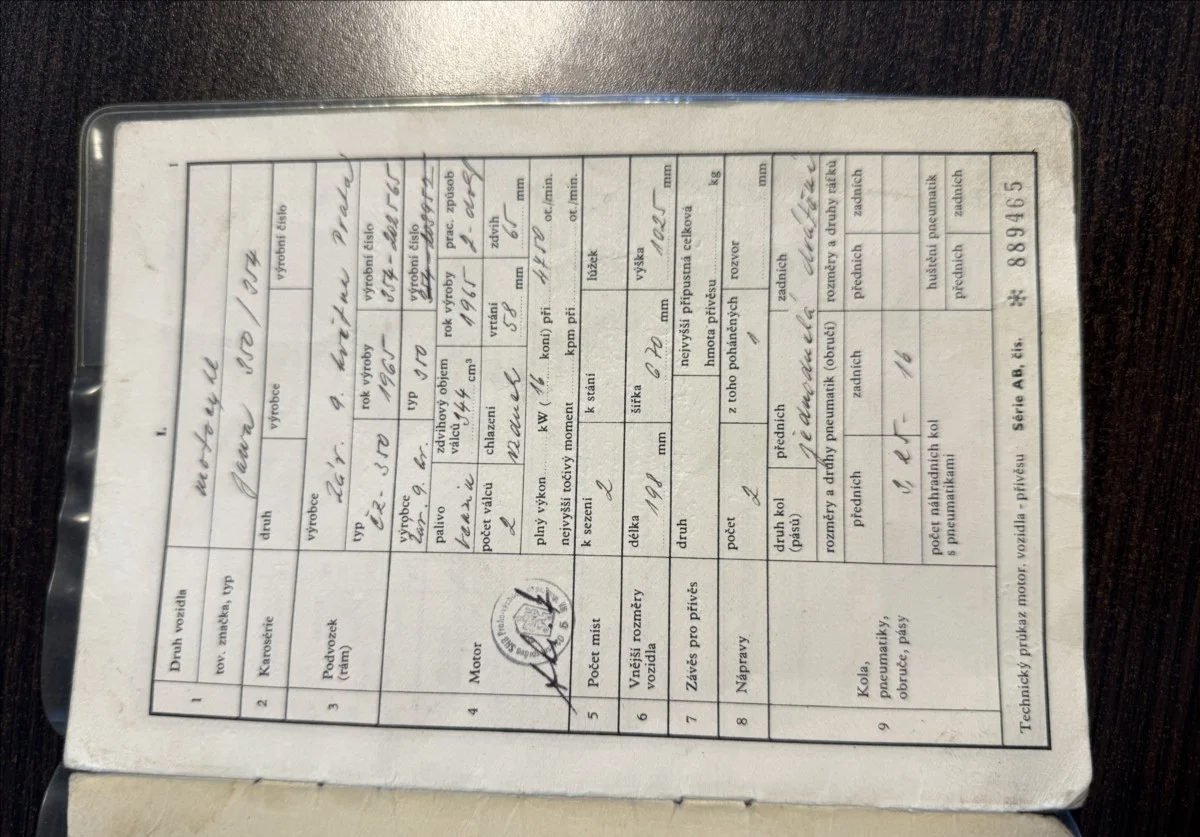 I.
1
1 Druh vozidla motocykl
tov. značka, typ Jawa 350/354
2 Karosérie druh výrobce výrobní číslo
3 Podvozek (rám) výrobce Záv. 9. května Praha
typ ČZ-350 rok výroby 1965 výrobní číslo 354-202565
4 Motor výrobce Záv. 9. kv. typ 350 výrobní číslo
palivo benzin zdvihový objem válců 344 cm³ rok výroby 1965 prac. způsob 2-dob
počet válců 2 chlazení vzduch vrtání 58 mm zdvih 65 mm
plný výkon kW (16 koní) při 4750 ot./min.
nejvyšší točivý moment kpm při ot./min.
5 Počet míst k sezení 2 k stání lůžek
6 Vnější rozměry vozidla délka 198 mm šířka 670 mm výška 1025 mm
7 Závěs pro přívěs druh nejvyšší přípustná celková hmota přívěsu kg
8 Nápravy počet 2 z toho poháněných 1 rozvor mm
9 Kola, pneumatiky, obruče, pásy druh kol (pásů) předních zadních
rozměry a druhy pneumatik (obručí) rozměry a druhy ráfků
předních zadních předních zadních
3,25- 16
počet náhradních kol s pneumatikami huštění pneumatik
předních zadních
Technický průkaz motor. vozidla - přívěsu Série AB, čís. ✻ 889465